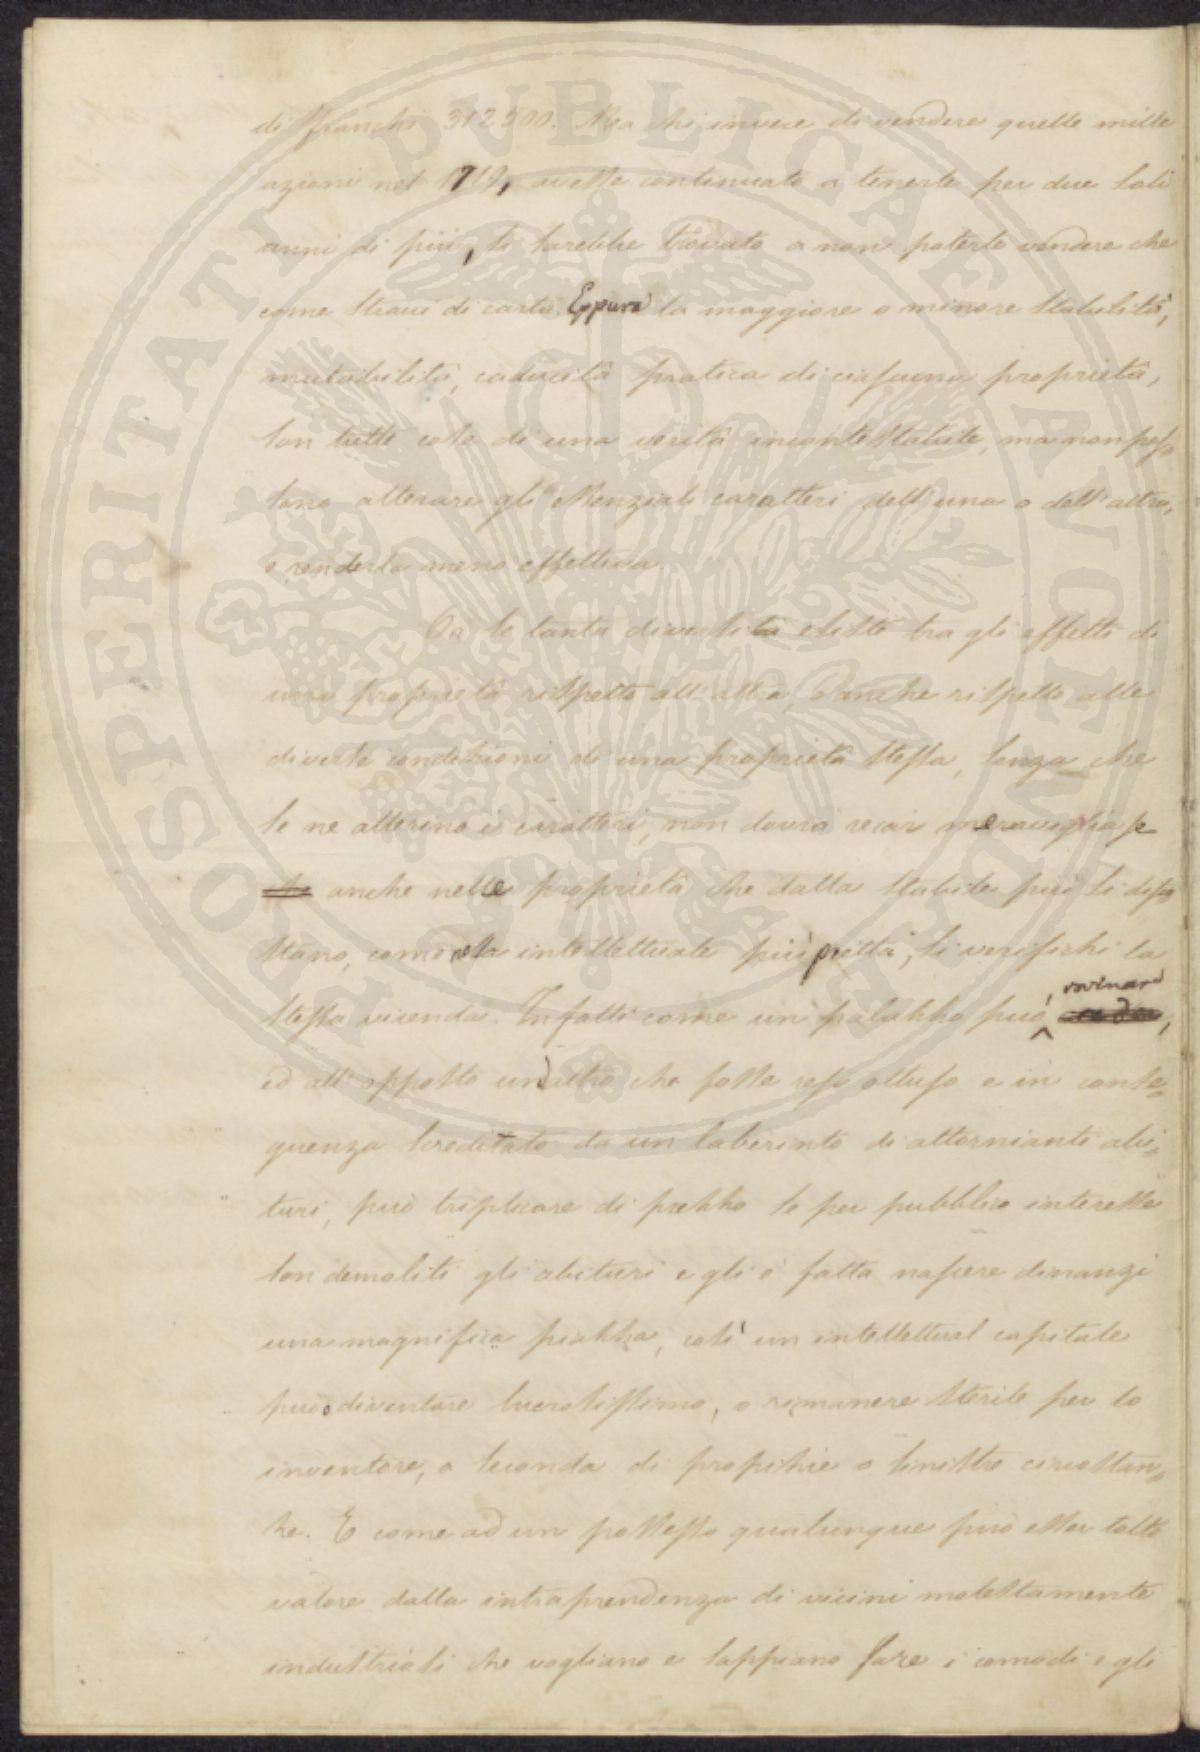 di franchi 312.500. Ma chi invece di vendere quelle mille
azioni nel 1719, avesse continuato a tenerle per due soli
anni di più, si sarebbe trovato a non poterle vendere che
come stracci di carta. Eppure la maggiore o minore stabilità,
mutabilità, caducità pratica di ciascuna proprietà,
son tutte cose di una verità incontestabile, ma non pos-
sono alterare gli essenziali caratteri dell'una o dell'altra,
e renderla meno effettiva.
Or se tanta diversità esiste tra gli effetti di
una proprietà rispetto all'altra, e anche rispetto alle
diverse condizioni di una proprietà stessa, senza che
se ne alterino i caratteri, non dovrà recar meraviglia se
anche nelle proprietà che dalla stabile più si disco
stano, come la intellettuale più pretta, si verifichi la
stessa vicenda. Infatti come un palazzo può rovinare,
ed all'opposto un altro che fosse reso ottuso e in conse-
guenza screditato da un laberinto di attornianti abi-
turi, può triplicare di prezzo se per pubblico interesse
son demoliti gli abituri e gli è fatta nascere dinanzi
una magnifica piazza, così un intellettual capitale
può diventare lucrosissimo, o rimanere sterile per lo
inventore, a seconda di propizie o sinistre circostan-
ze. E come ad un possesso qualunque può esser tolto
valore dalla intraprendenza di vicini molestamente
industriosi che vogliano e sappiano fare i comodi e gli